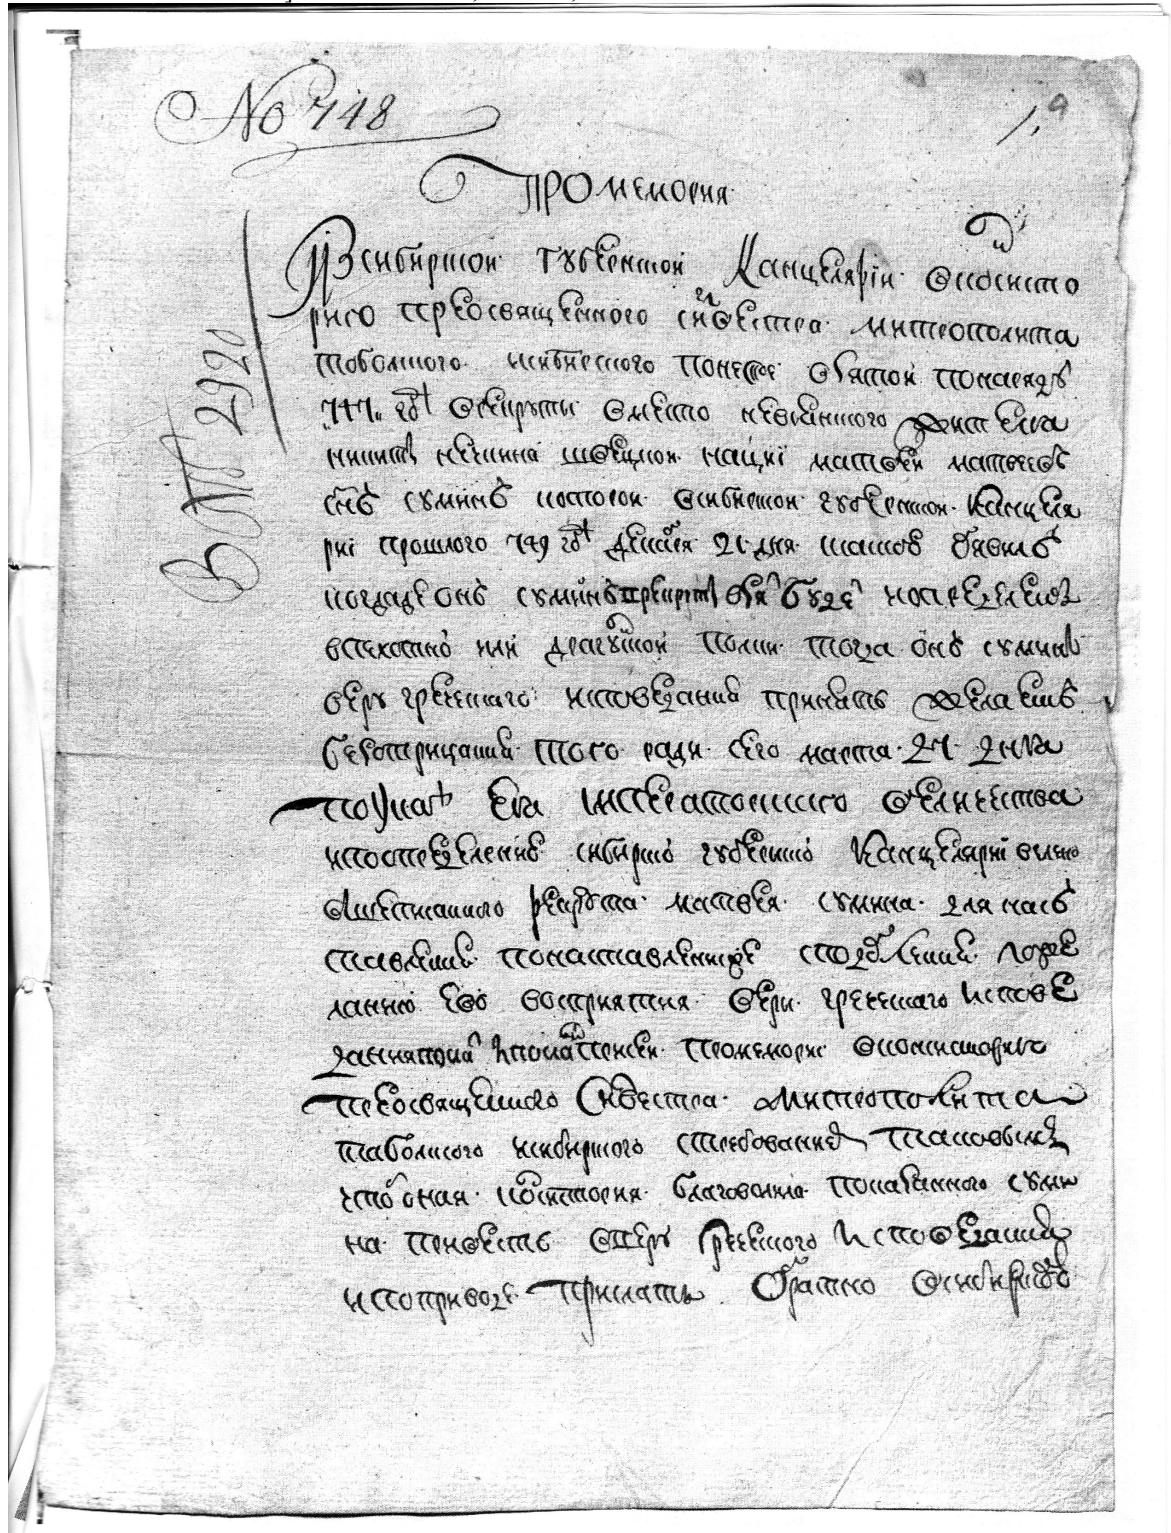 № 748
1
Промемория
Из сибирской губернской Канцелярии в консисто
рию преосвященного силвестра митрополита
тоболского и сибирского понеже взятой по наряду
747 году в рекруты вместо невянского жителя
никиты нечкина швецкой нации матвей матвеев
снъ суминъ которой в сибирской губернской канцеля
рии прошлого 749 году декабря 21 дня сказкою объявилъ
когда де онъ суминъ в рекруты взят и будет и определен
в пехотной или драгунской полки тогда онъ суминъ
веру греческаго исповедания принять желаетъ
без отрицания того ради сего марта 24 дня
по указу Ея императорского величества
и по определению сибирской губернской Канцелярии велено
вышеписанного рекрута матвея сумина для насъ
тавления по наставлении же сподобления по же
ланию его восприятия веры греческаго испове
дания при промемории в консисторию
преосвященного Силвестра митрополита
таболского и сибирского с требованием таковым
чтоб оная консистория благоволила показанного суми
на привесть в веру греческого исповедания
и по приводе прислать обратно в сибирскую
ВМ 2920